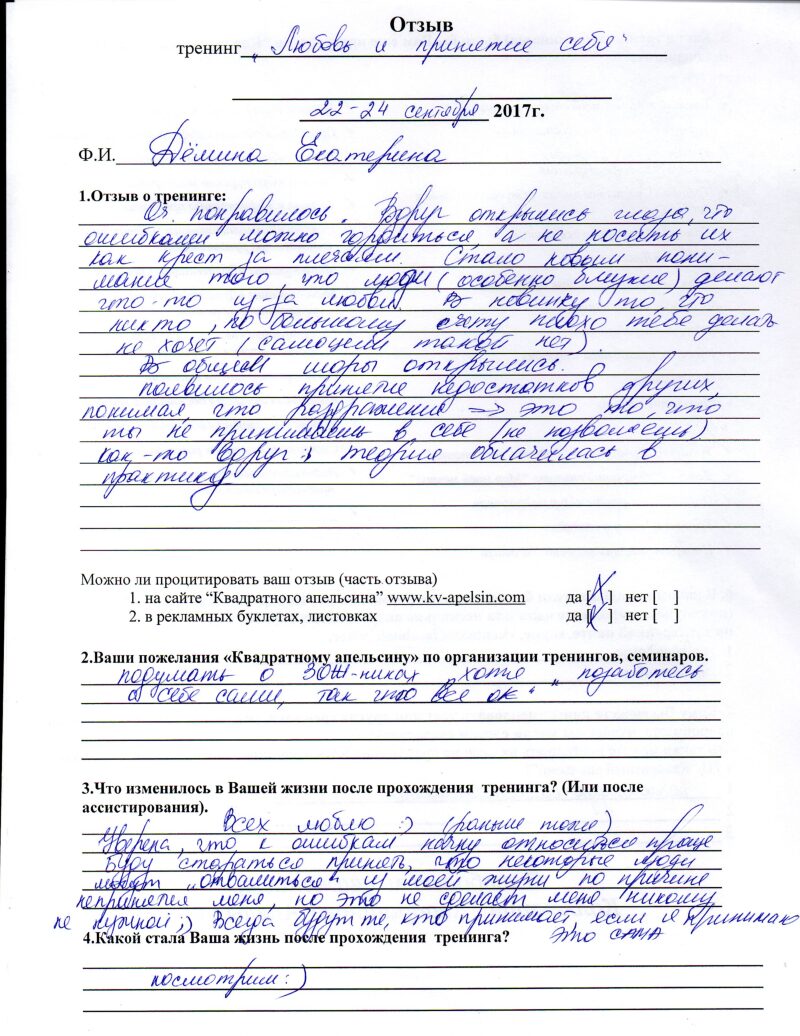 Отзыв
тренинг „Любовь и принятие себя“
22-24 сентября 2017г.
Ф.И. Дёмина Екатерина
1.Отзыв о тренинге:
Оч. понравилось. Вдруг открылись глаза, что
ошибками можно гордиться а не носить их
как крест за плечами. Стало новым пони-
мание того, что люди (особенно близкие) делают
что-то из-за любви. В новинку то, что
никто, по большому счету плохо тебе делать
не хочет (самоцели такой нет).
В общем шоры открылись.
Появилось принятие недостатков других,
понимая, что раздражения => это то, что
ты не принимаешь в себе (не позволяешь)
как-то вдруг :) теория облачилась в
практику
Можно ли процитировать ваш отзыв (часть отзыва)
1. на сайте “Квадратного апельсина” www.kv-apelsin.com да [X] нет [ ]
2. в рекламных буклетах, листовках да [X] нет [ ]
2.Ваши пожелания «Квадратному апельсину» по организации тренингов, семинаров.
подумать о ЗОЖ-никах хотя „позаботесь
о себе сами, так что все ок“
3.Что изменилось в Вашей жизни после прохождения тренинга? (Или после
ассистирования).
Всех люблю :) (раньше тоже)
Уверена, что к ошибкам начну относиться проще
Буду стараться принять, что некоторые люди
могут „отвалиться“ из моей жизни по причине
непринятия меня, но это не сделает меня никому
не нужной ;) Всегда будут те, кто принимает, если я принимаю
это сама
4.Какой стала Ваша жизнь после прохождения тренинга?
посмотрим :)